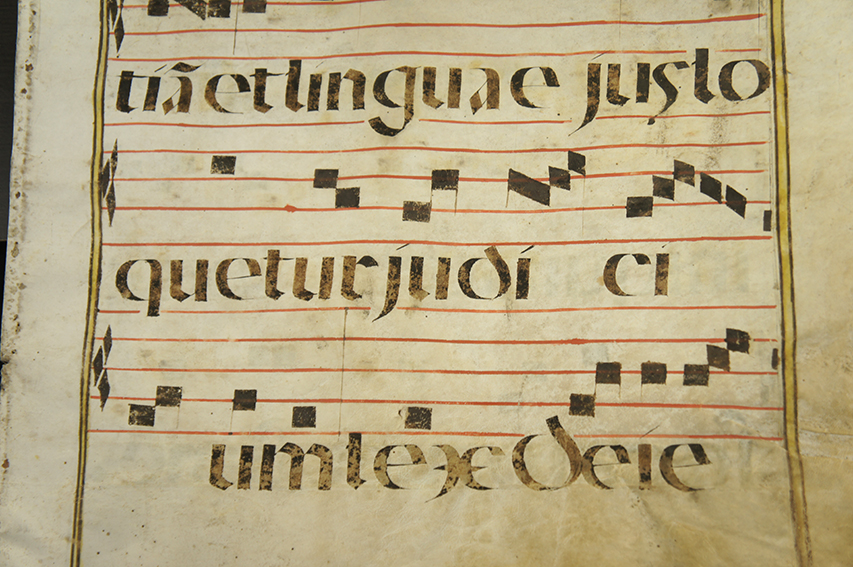 tiã et linguae jus lo
quetur judi ci
um lex dei e